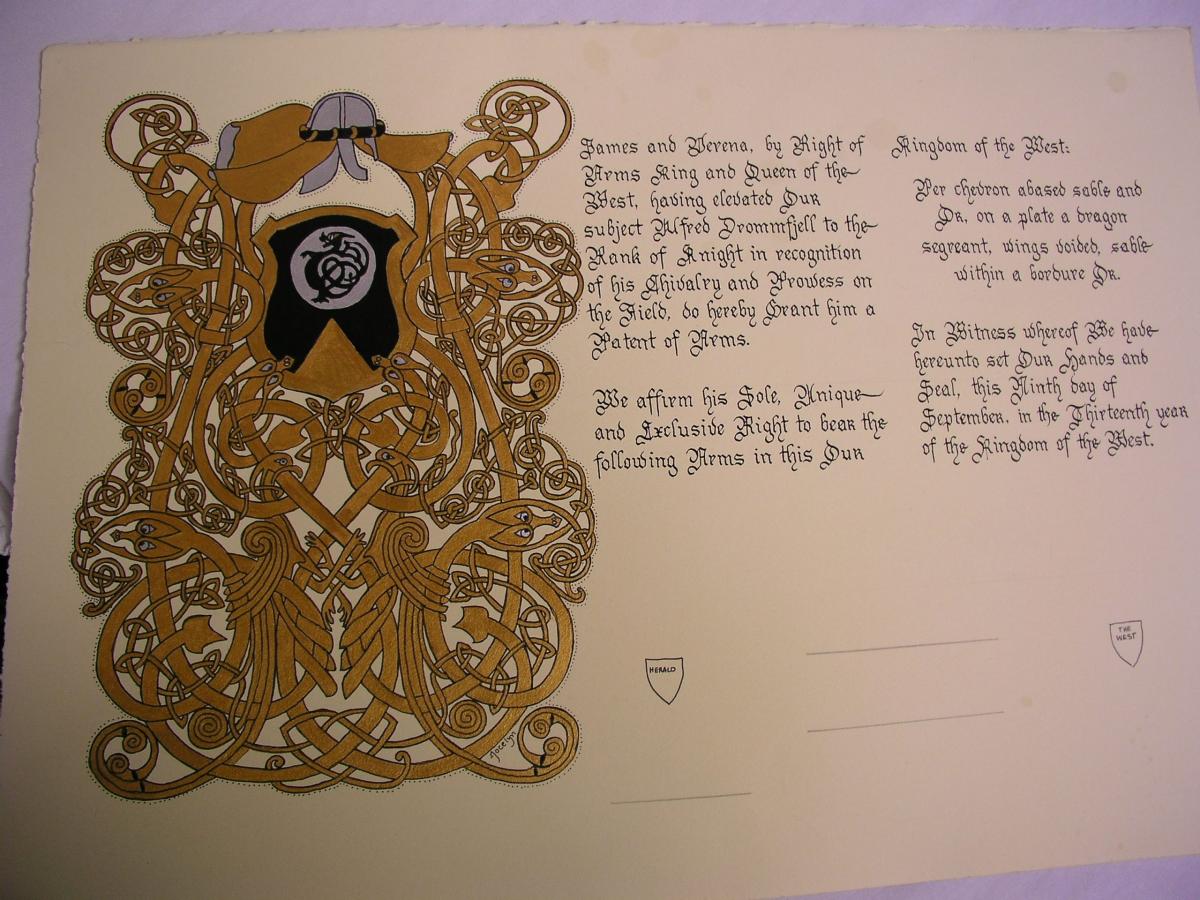 James and Verena, by Right of
Arms King and Queen of the
West, having elevated Our
subject Alfred Drommfjell to the
Rank of Knight in recognition
of his Chivalry and Prowess on
the Field, do hereby Grant him a
Patent of Arms.
We affirm his Sole, Unique
and Exclusive Right to bear the
following Arms in this Our
Kingdom of the West:
Per chevron abased sable and
Or, on a plate a dragon
segreant, wings voided, sable
within a bordure Or.
In Witness whereof We have
hereunto set Our Hands and
Seal, this Ninth day of
September, in the Thirteenth year
of the Kingdom of the West.
HERALD
THE
WEST
Jocelyn